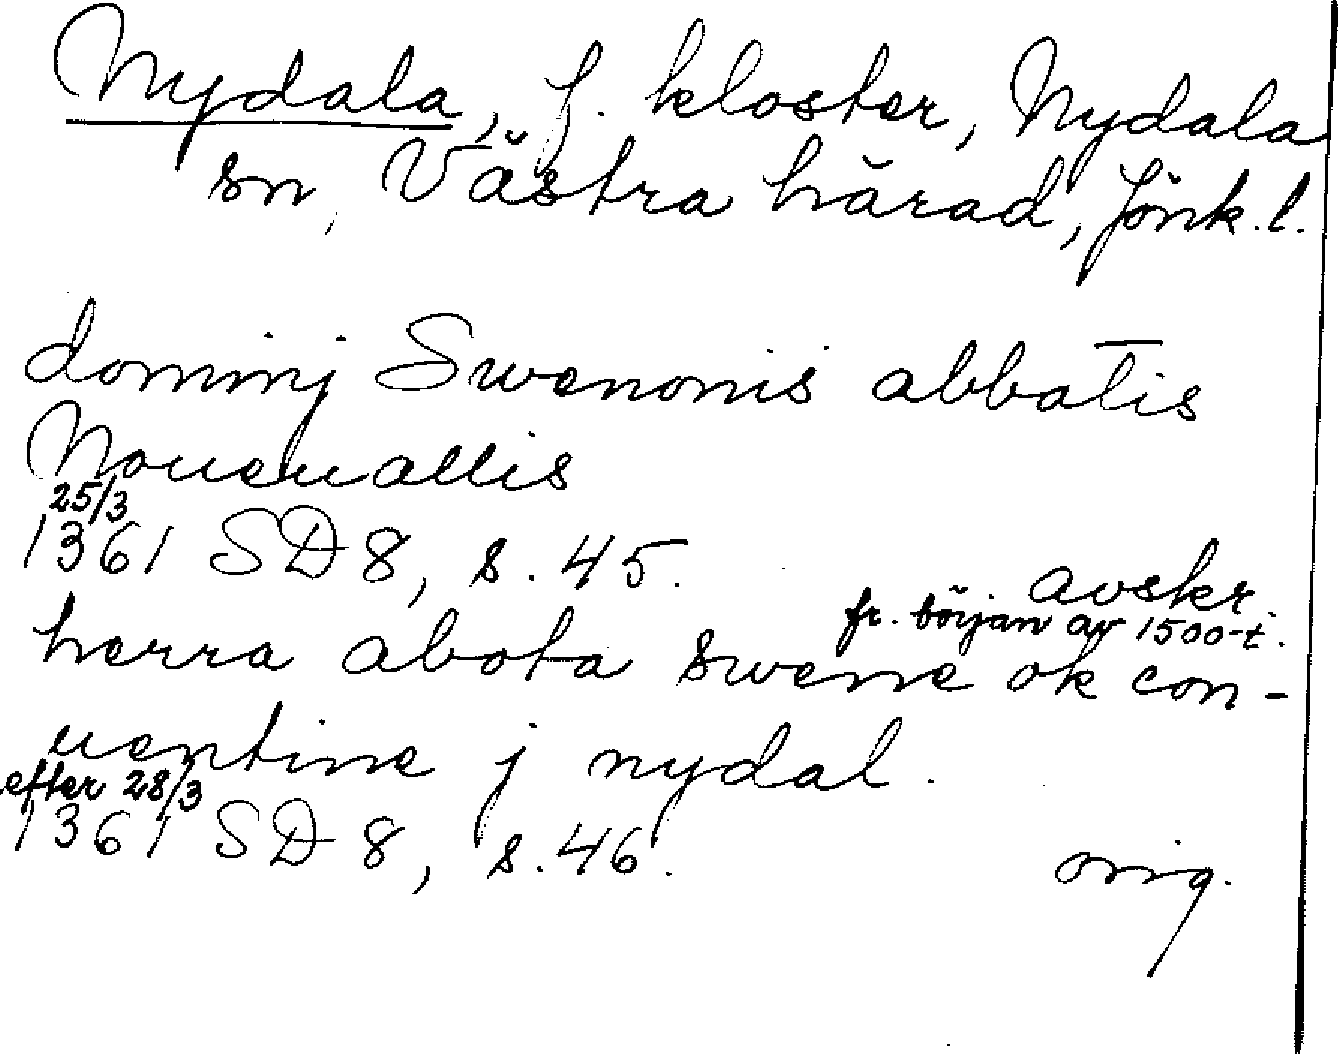 Nydala, f. kloster, Nydala
sn, Västra härad, Jönk. l.
dominj Swenonis abbatis
Noueuallis
25/3
1361 SD 8, s. 45. avskr.
fr. början av 1500-t.
herra abota swene ok con-
uentine j nydal.
efter 28/3
1361 SD 8, s. 46. orig.